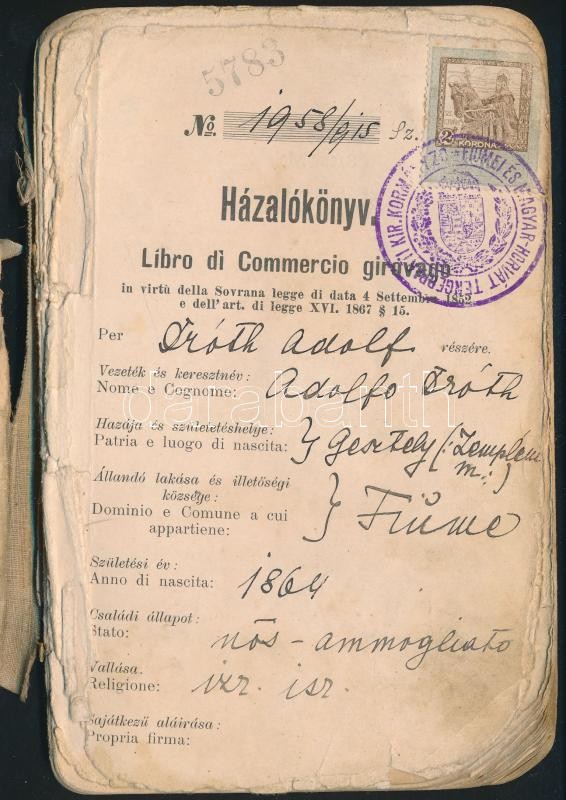 5783
No 1958/915 Sz.
2 KORONA
KIR. KORMÁNYZÓ FIUMEI ÉS MAGYAR-HORVÁT TENGERP
Házalókönyv.
Libro di Commercio girovago
in virtù della Sovrana legge di data 4 Settembre 1852
e dell'art. di legge XVI. 1867 § 15.
Per Tróth Adolf részére.
Vezeték és keresztnév:
Nome e Cognome: Adolfo Tróth
Hazája és születéshelye:
Patria e luogo di nascita: } Gesztely (: Zemplén
m. :)
Állandó lakása és illetőségi
községe:
Dominio e Comune a cui
appartiene: } Fiume
Születési év:
Anno di nascita: 1864
Családi állapot:
Stato: nős - ammogliato
Vallása.
Religione: izr. isr.
Sajátkezű aláírása:
Propria firma:
darabanth